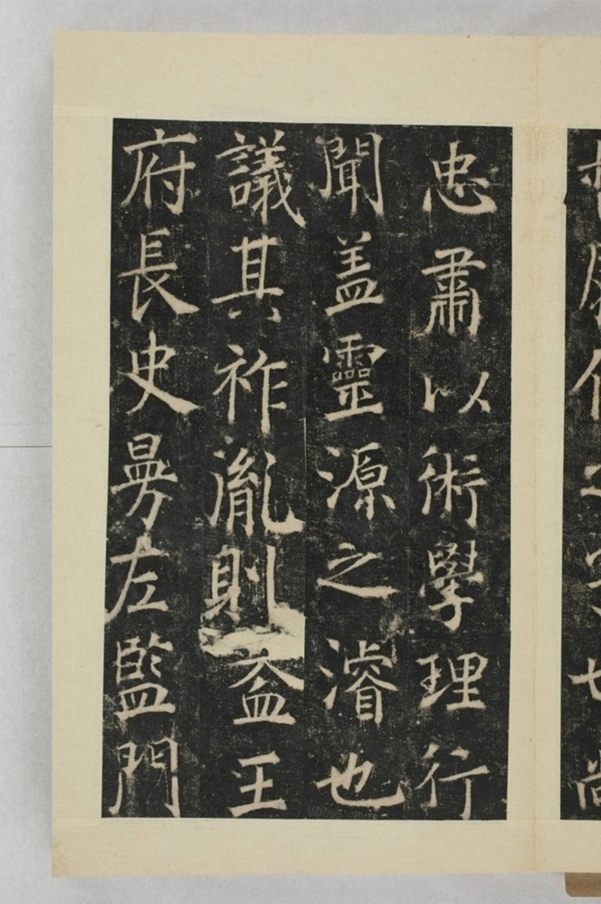 忠肅以術學理行
聞盖靈源之濬也
議其祚胤則益王
府長史左監門